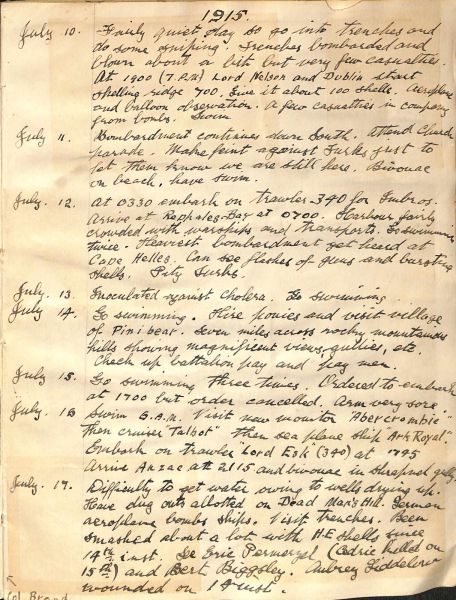 1915.
July 10. Fairly quiet day so go into trenches and
do some sniping. Trenches bombarded and
blown about a bit but very few casualties.
At 1900 (7.P.M) Lord Nelson and Dublin start
shelling ridge 700. Give it about 100 shells. Aeroplane
and balloon observation. A few casualties in company
from bombs. Swim
July 11. Bombardment continues down South. Attend Church
parade. Make feint against Turks just to
let them know we are still here. Bivouac
on beach, have swim.
July. 12. At 0330 embark on trawler 340 for Imbros.
Arrive at Bay at 0700. Harbour fairly
crowded with warships and transports. Go swimming
twice. Heaviest bombardment yet heard at
Cape Helles. Can see flashes of guns and bursting
shells. Pity Turks.
July. 13. Inoculated against Cholera. Go swimming.
July 14. Go swimming. Hire ponies and visit village
of Pinibear. Seven miles across rocky mountainous
hills showing magnificent views, gullies, etc.
Check up battalion pay and pay men.
July 15. Go swimming three times. Ordered to embark
at 1700 but order cancelled. Arm very sore
July. 16 Swim 6.A.M. Visit new monitor "Abercrombie"
then cruiser "Talbot" then sea plane ship Ark Royal"
Embark on trawler Lord (340) at 1745
Arrive Anzac at 2115 and bivouac in Shrapnel gully.
July. 17. Difficulty to get water owing to wells drying up.
Have dug outs allotted on Dead Man's Hill. German
aeroplane bombs ships. Visit trenches. Been
smashed about a lot with H.E shells since
14th inst. See Eric (Cedric killed on
15th) and Bert Biggsley. Aubrey
wounded on 1 inst.
Col